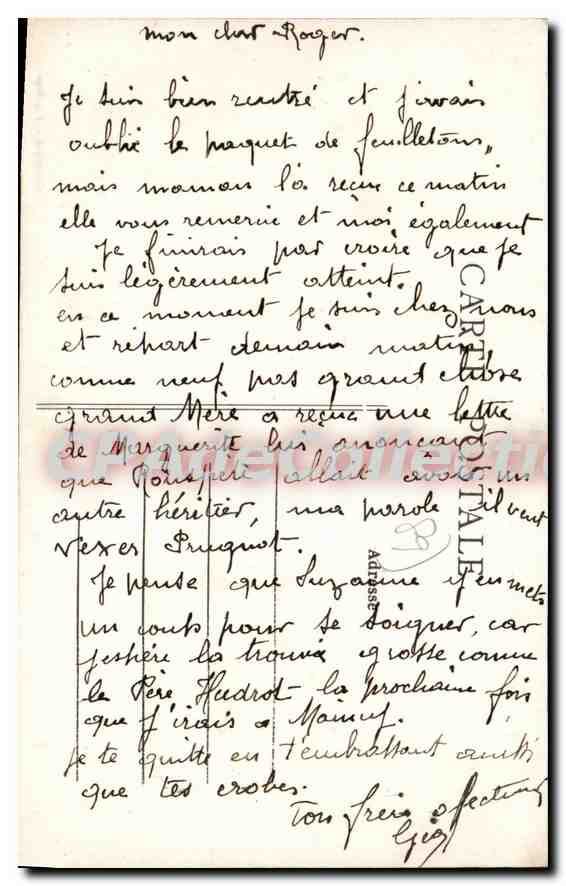 mon cher Roger.
Je suis bien rentré et j'avais
oublié le paquet de feuilletons,
mais maman l'a reçue ce matin
elle vous remercie et moi également
Je finirais par croire que je
suis légèrement atteint.
en ce moment je suis chez nous
et répart demain matin
comme neuf pas grand chose
grand Mère a reçue une lettre
de Marguerite lui anonçant
que allait avoir un
autre héritier, ma parole il veut
vexer Prugnot.
Je pense que Suzanne y en mets
un coup pour se soigner, car
j'espère la trouvée grosse comme
le Père Hudrot la prochaine fois
que j'irais a
Je te quitte en t'embrassant ainsi
que tes
Ton frère affectueux
CARTE POSTALE
Adresse